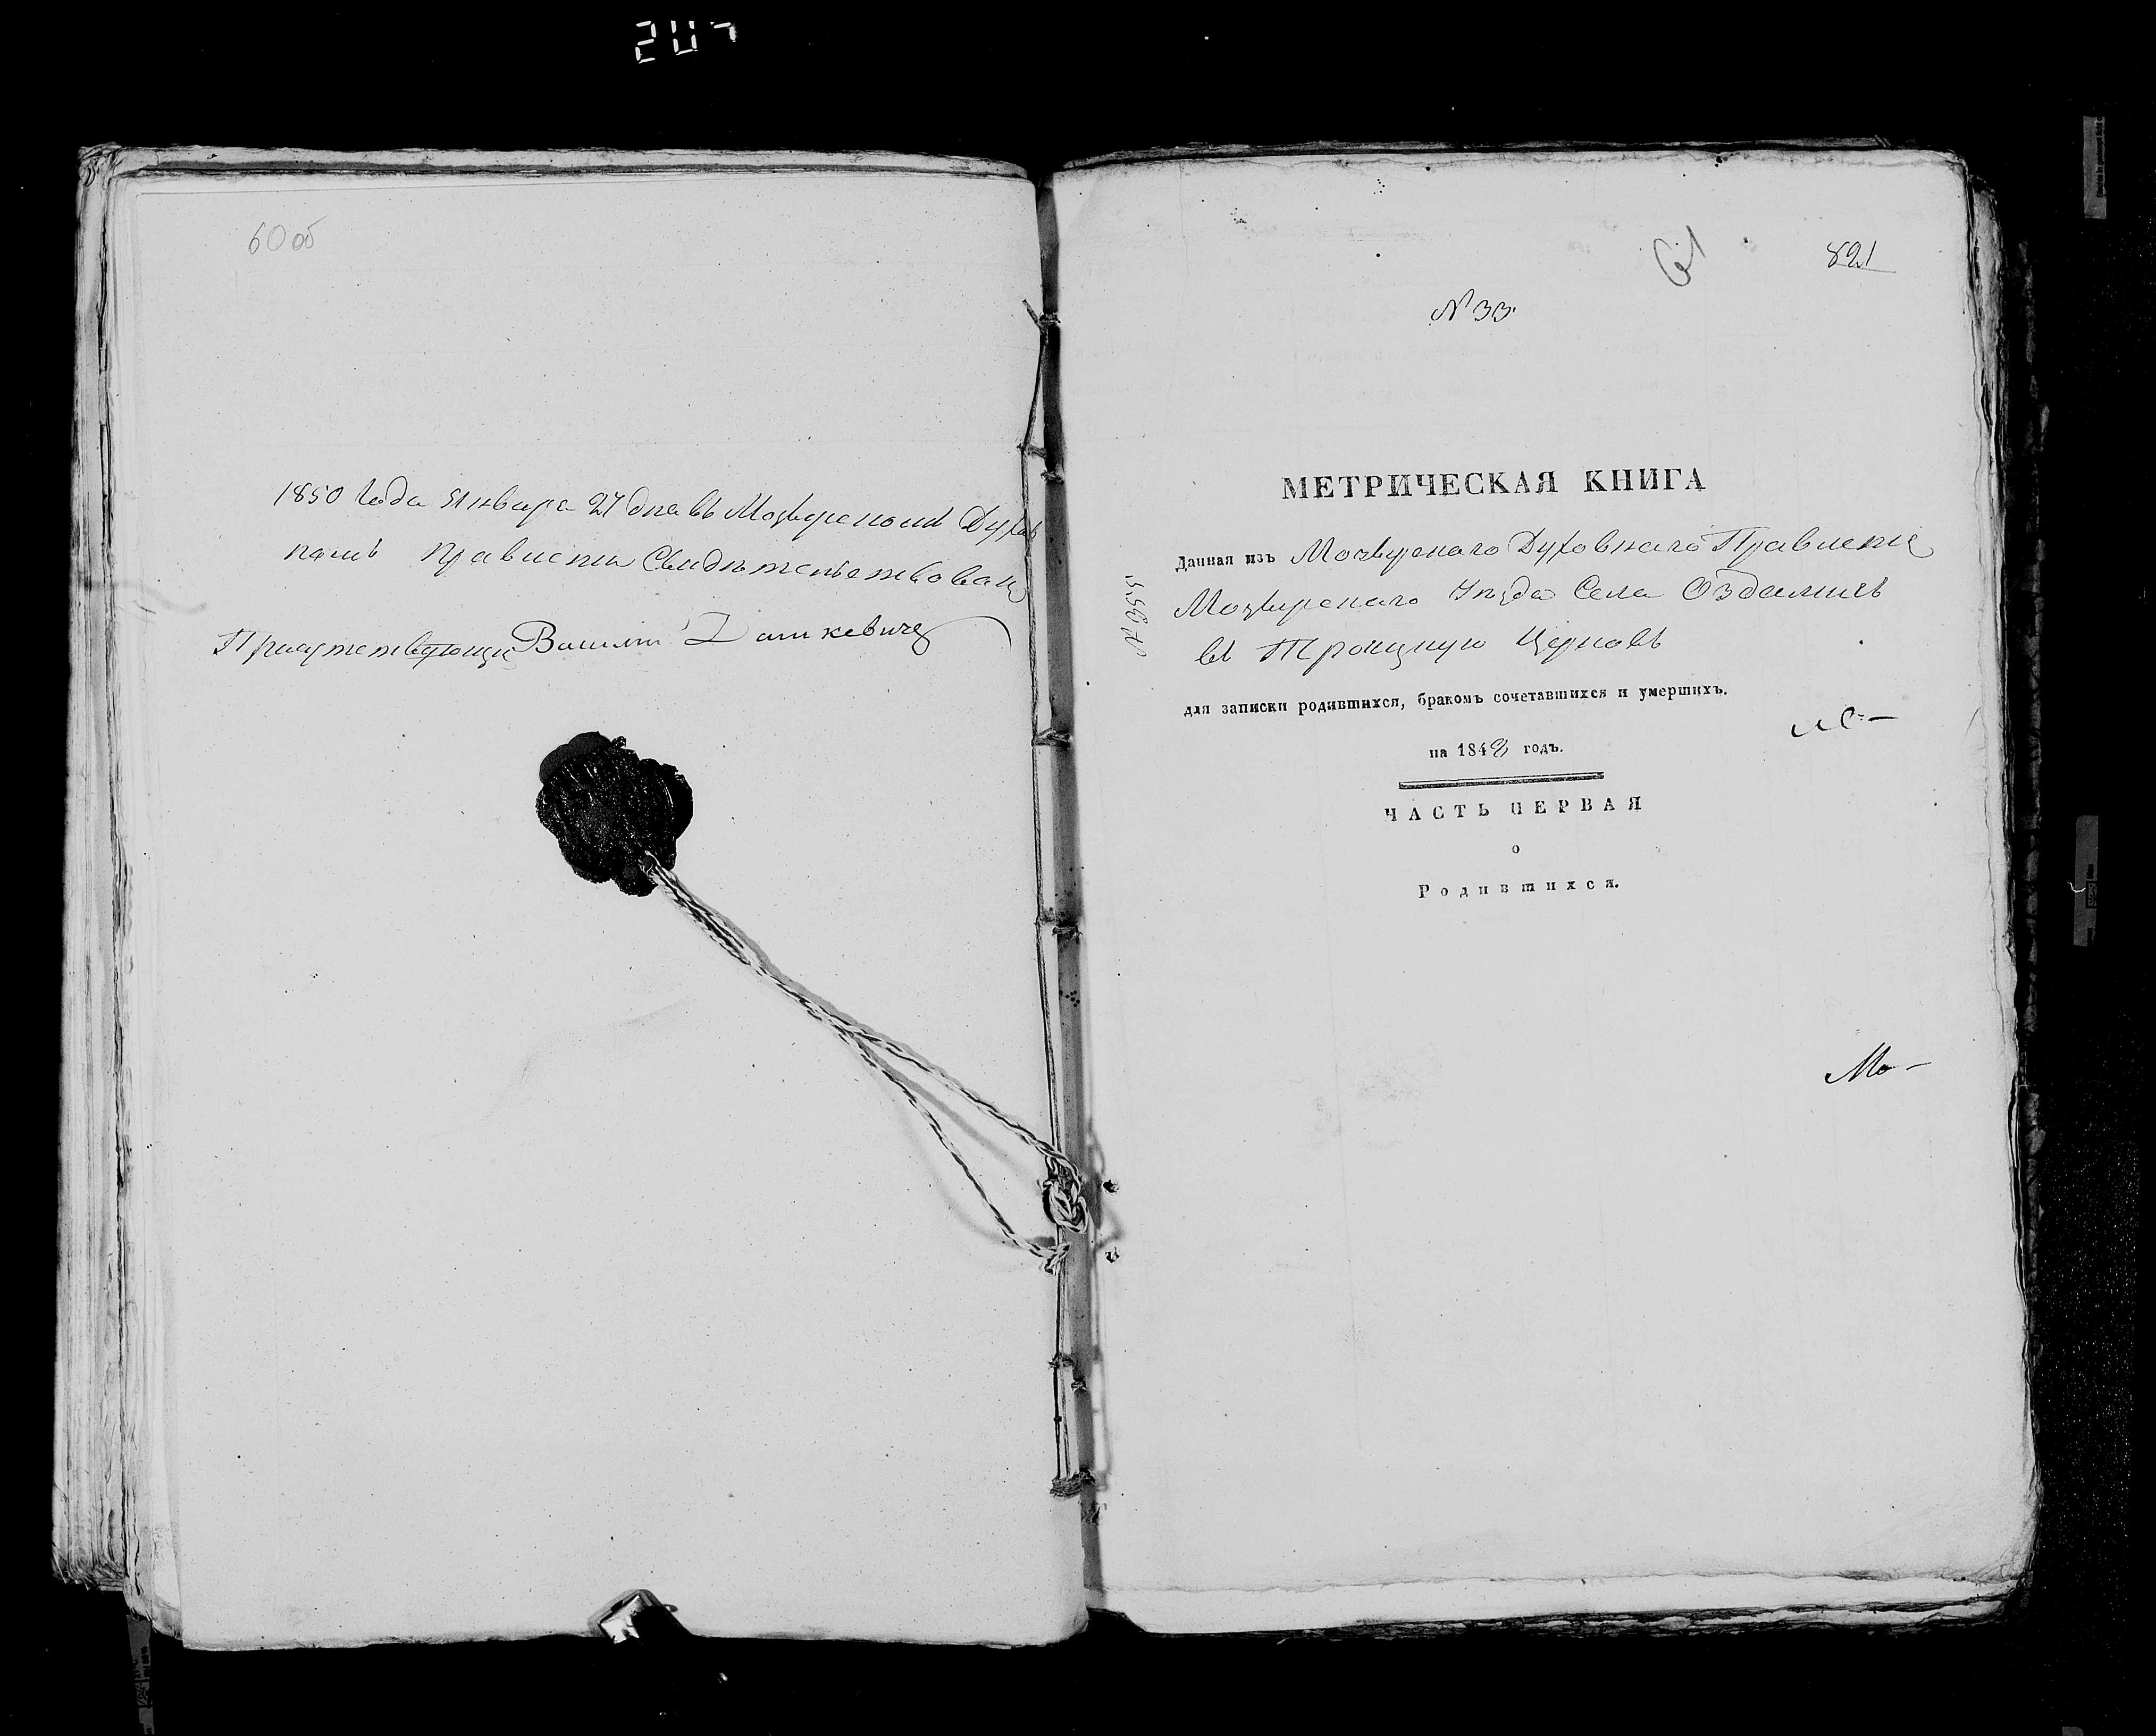 60 об
1850 года Января 27 дня въ Мозырскомъ Духов
номъ Правлении Свидѣтельствована
Присутствующий Василий Дашкевичъ
61
821
№ 33.
МЕТРИЧЕСКАЯ КНИГА
Данная изъ Мозырскаго Духовнаго Правления
Мозырскаго Уѣзда Села Оздамичъ
въ Троицкую Церковь
для записки родившихся, бракомъ сочетавшихся и умершихъ.
на 1848 годъ.
ЧАСТЬ ПЕРВАЯ
о
Родившихся.
Мо-